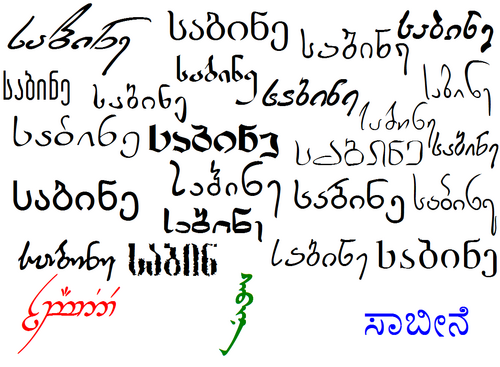 საბინე საბინე საბინე საბინე
საბინე საბინე საბინე საბინე საბინე
საბინე საბინე საბინე საბინე საბინე
საბინე საბინე საბინე საბინე
საბინე
საბინე საბინ საბინე საბინე
ಸಾಬೀನೆ